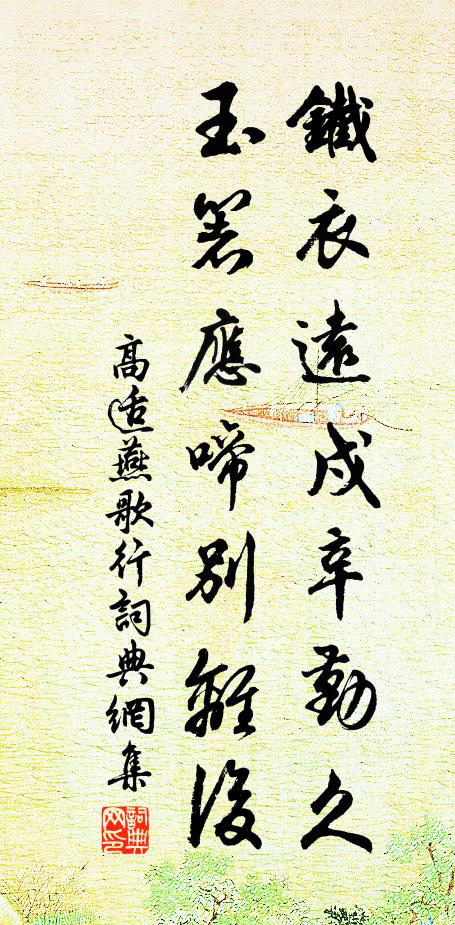 鐵衣遠戍辛勤久
玉箸應啼別離後
高適燕歌行詞典網集
詞典网印